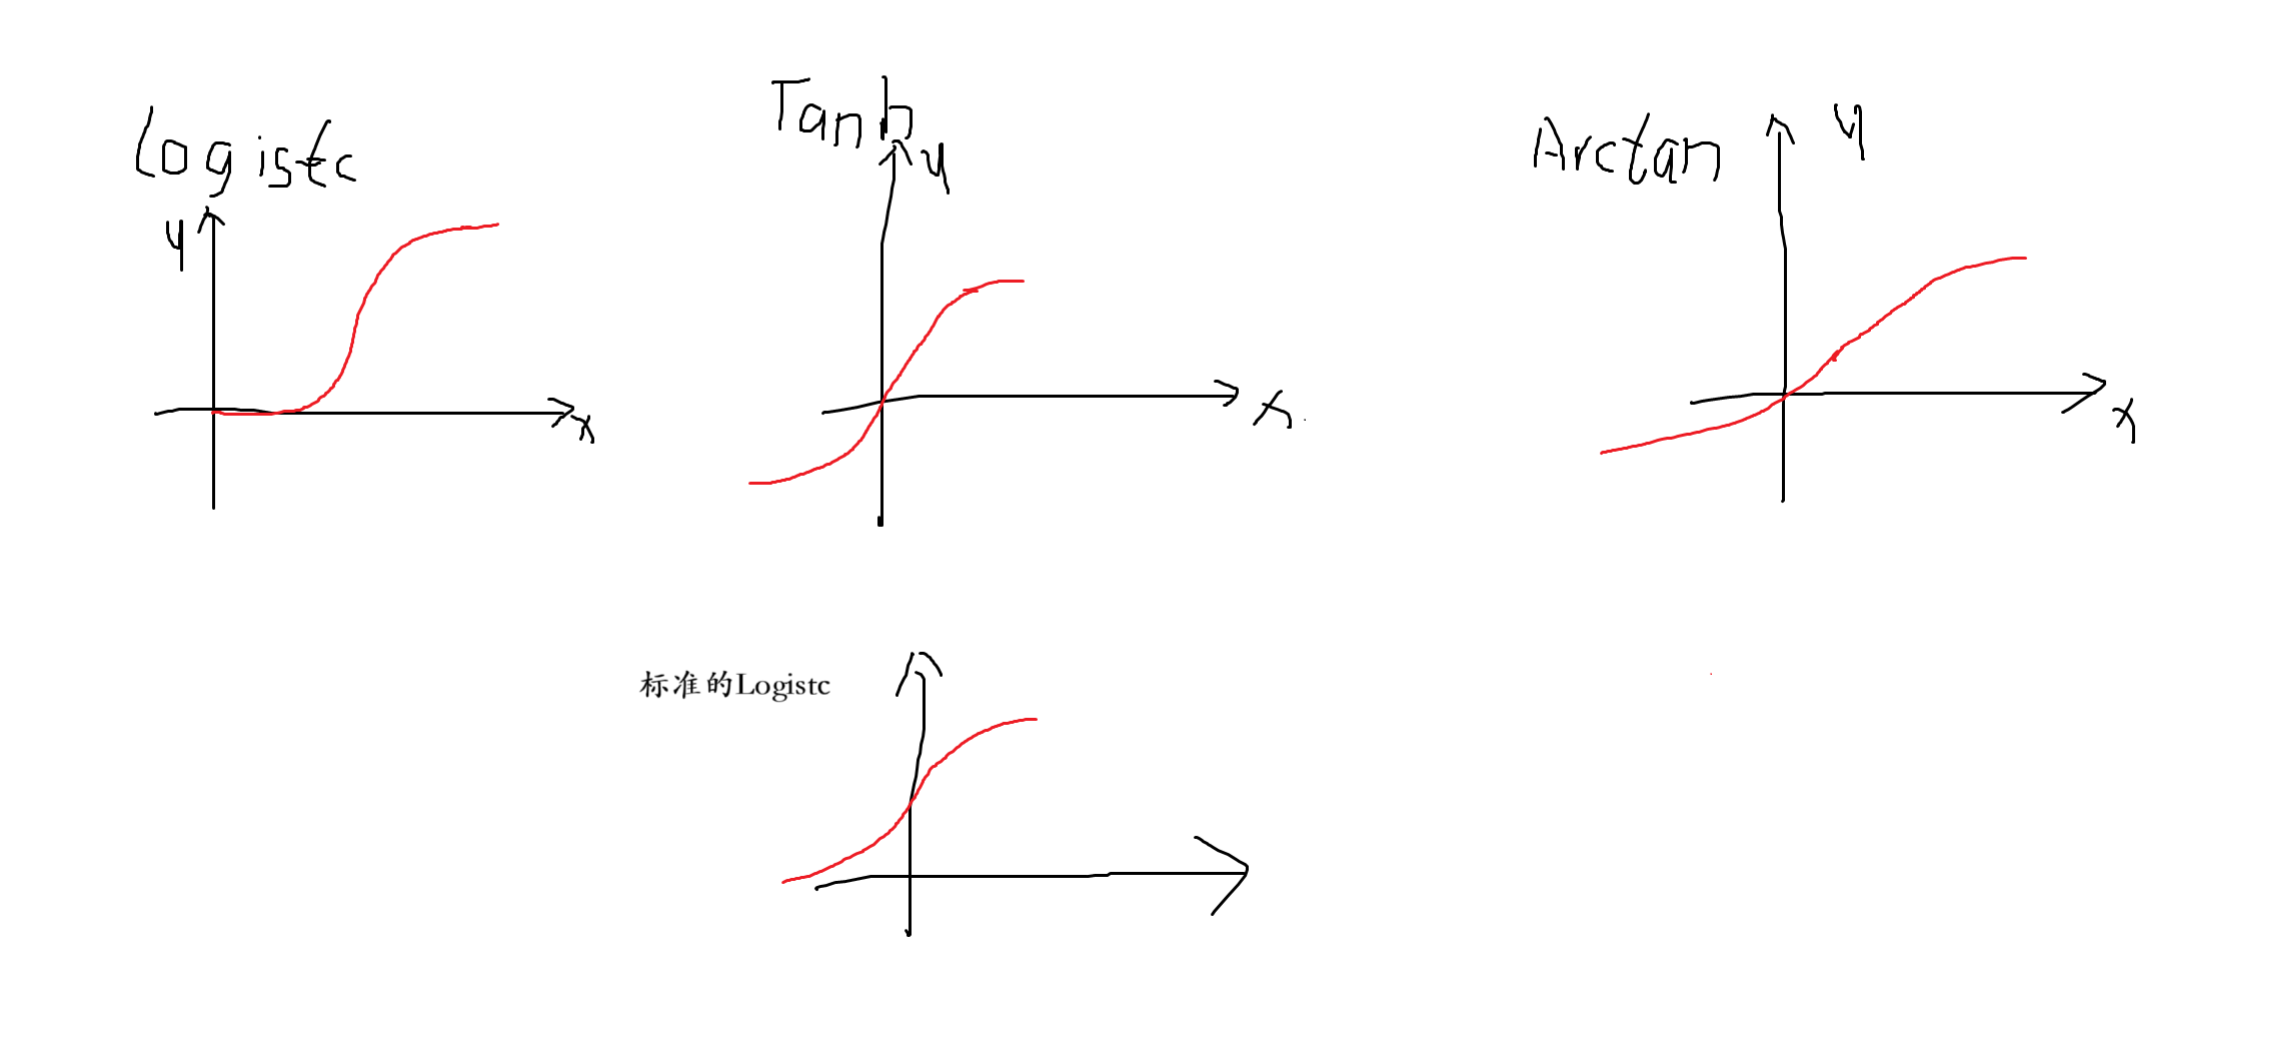 Logistc
y
x
Tanh
y
x
Arctan
y
x
标准的Logistc